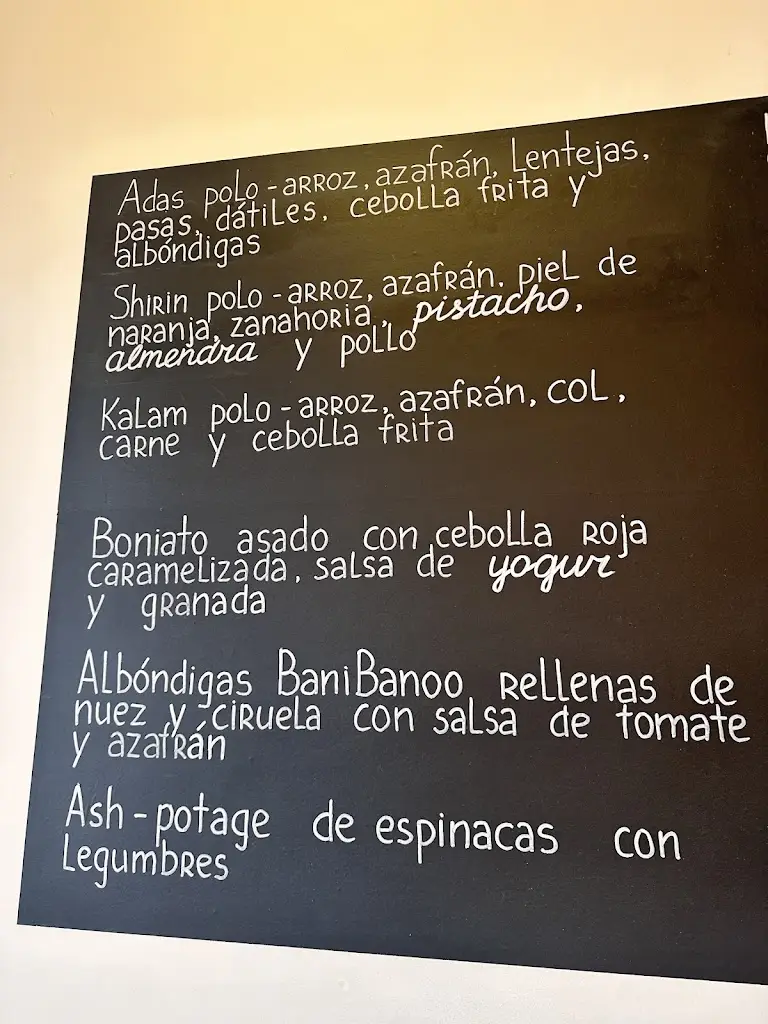 Adas polo - arroz, azafrán, Lentejas,
pasas, dátiles, cebolla frita y
albóndigas
Shirin polo - arroz, azafrán, piel de
naranja, zanahoria, pistacho,
almendra y pollo
Kalam polo - arroz, azafrán, col,
carne y cebolla frita
Boniato asado con cebolla roja
caramelizada, salsa de yogur
y granada
Albóndigas BaniBanoo rellenas de
nuez y ciruela con salsa de tomate
y azafrán
Ash - potage de espinacas con
Legumbres